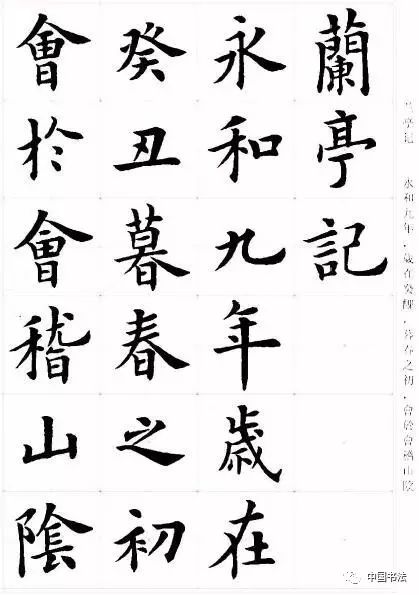 兰亭记 永和九年，歲在癸醜，暮春之初，會於會稽山陰
蘭亭記
永和九年歲在
癸丑暮春之初
會於會稽山陰
中国书法